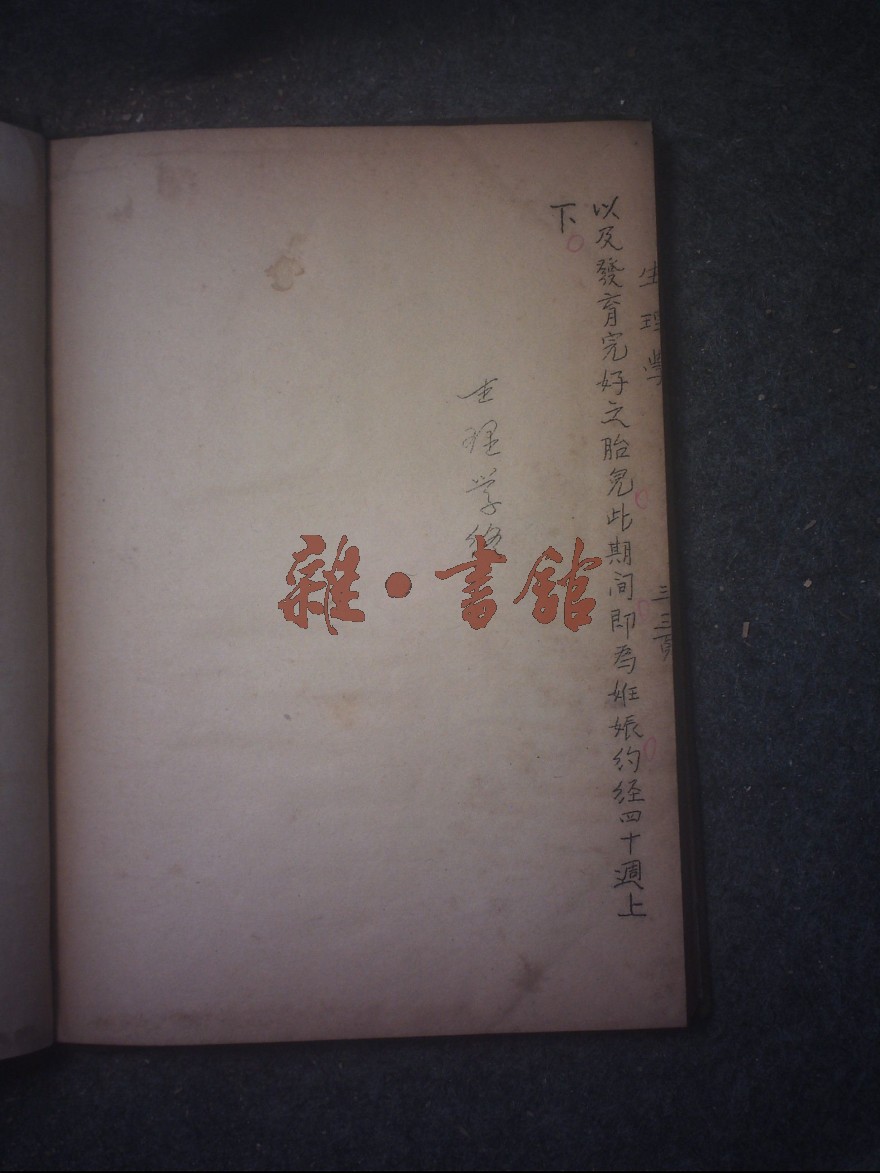 生理学
三三頁
以及發育完好之胎兒此期间即為姙娠约经四十週上
下
生理学终
雜·書館